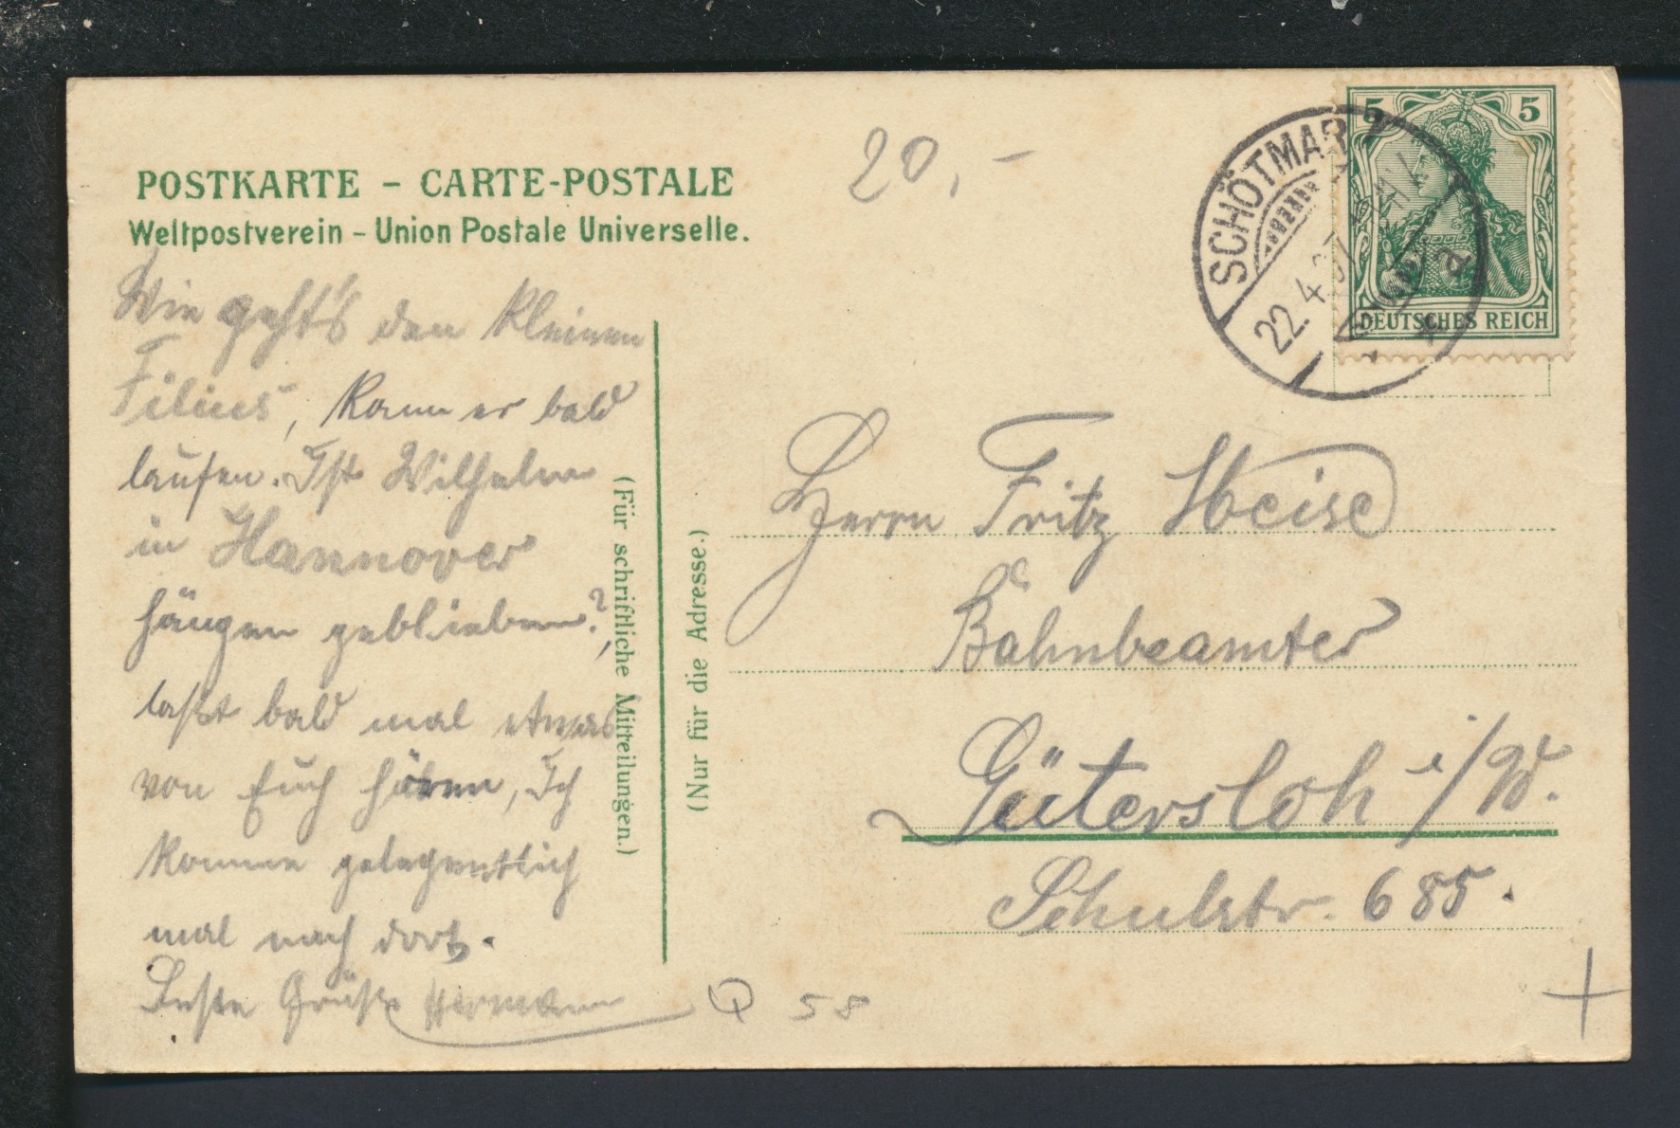 POSTKARTE – CARTE-POSTALE
Weltpostverein – Union Postale Universelle.
20,–
SCHÖTMAR
22.4.07
5 5
DEUTSCHES REICH
Wie geht's den kleinen
Filius, kann er bald
laufen. Ist Wilhelm
in Hannover
hängen geblieben?,
laßt bald mal etwas
von Euch hören, Ich
komme gelegentlich
mal nach dort.
Beste Grüße Hermann
(Für schriftliche Mitteilungen.)
(Nur für die Adresse.)
Herrn Fritz Heise
Bahnbeamter
Gütersloh i/W.
Schulstr. 685.
Q 58